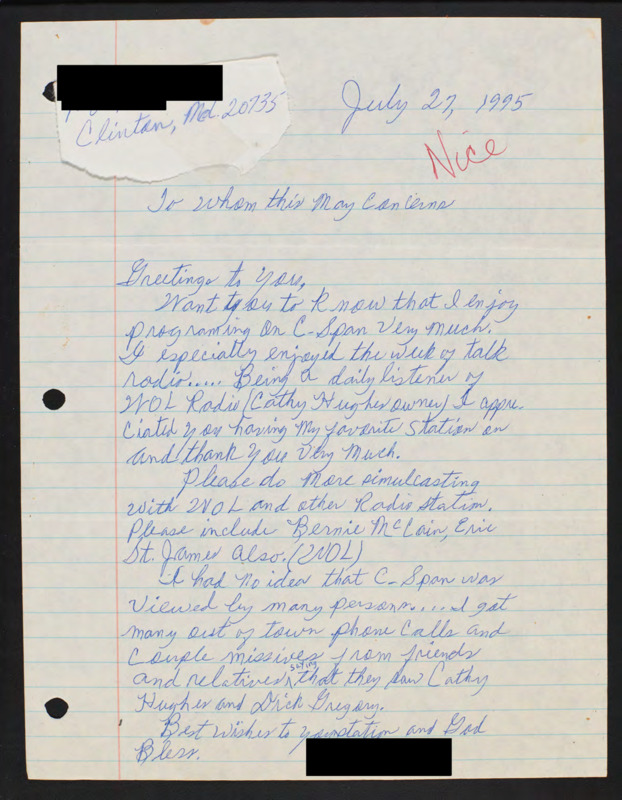 Clinton, Md. 20735
July 27, 1995
Nice
To Whom this May Concerns
Greetings to You,
Want you to know that I enjoy
programing on C-Span Very Much.
I especially enjoyed the week of talk
radio..... Being a daily listener of
WOL Radio (Cathy Hughes owner) I appre-
ciated you having My favorite station on
and thank You Very Much.
Please do More simulcasting
with WOL and other Radio Station.
Please include Bernie McCain, Eric
St. James also. (WOL)
I had no idea that C-Span was
Viewed by many persons.... I got
many out of town phone calls and
couple missives from friends
and relatives saying that they saw Cathy
Hughes and Dick Gregory.
Best Wishes to your station and God
Bless.